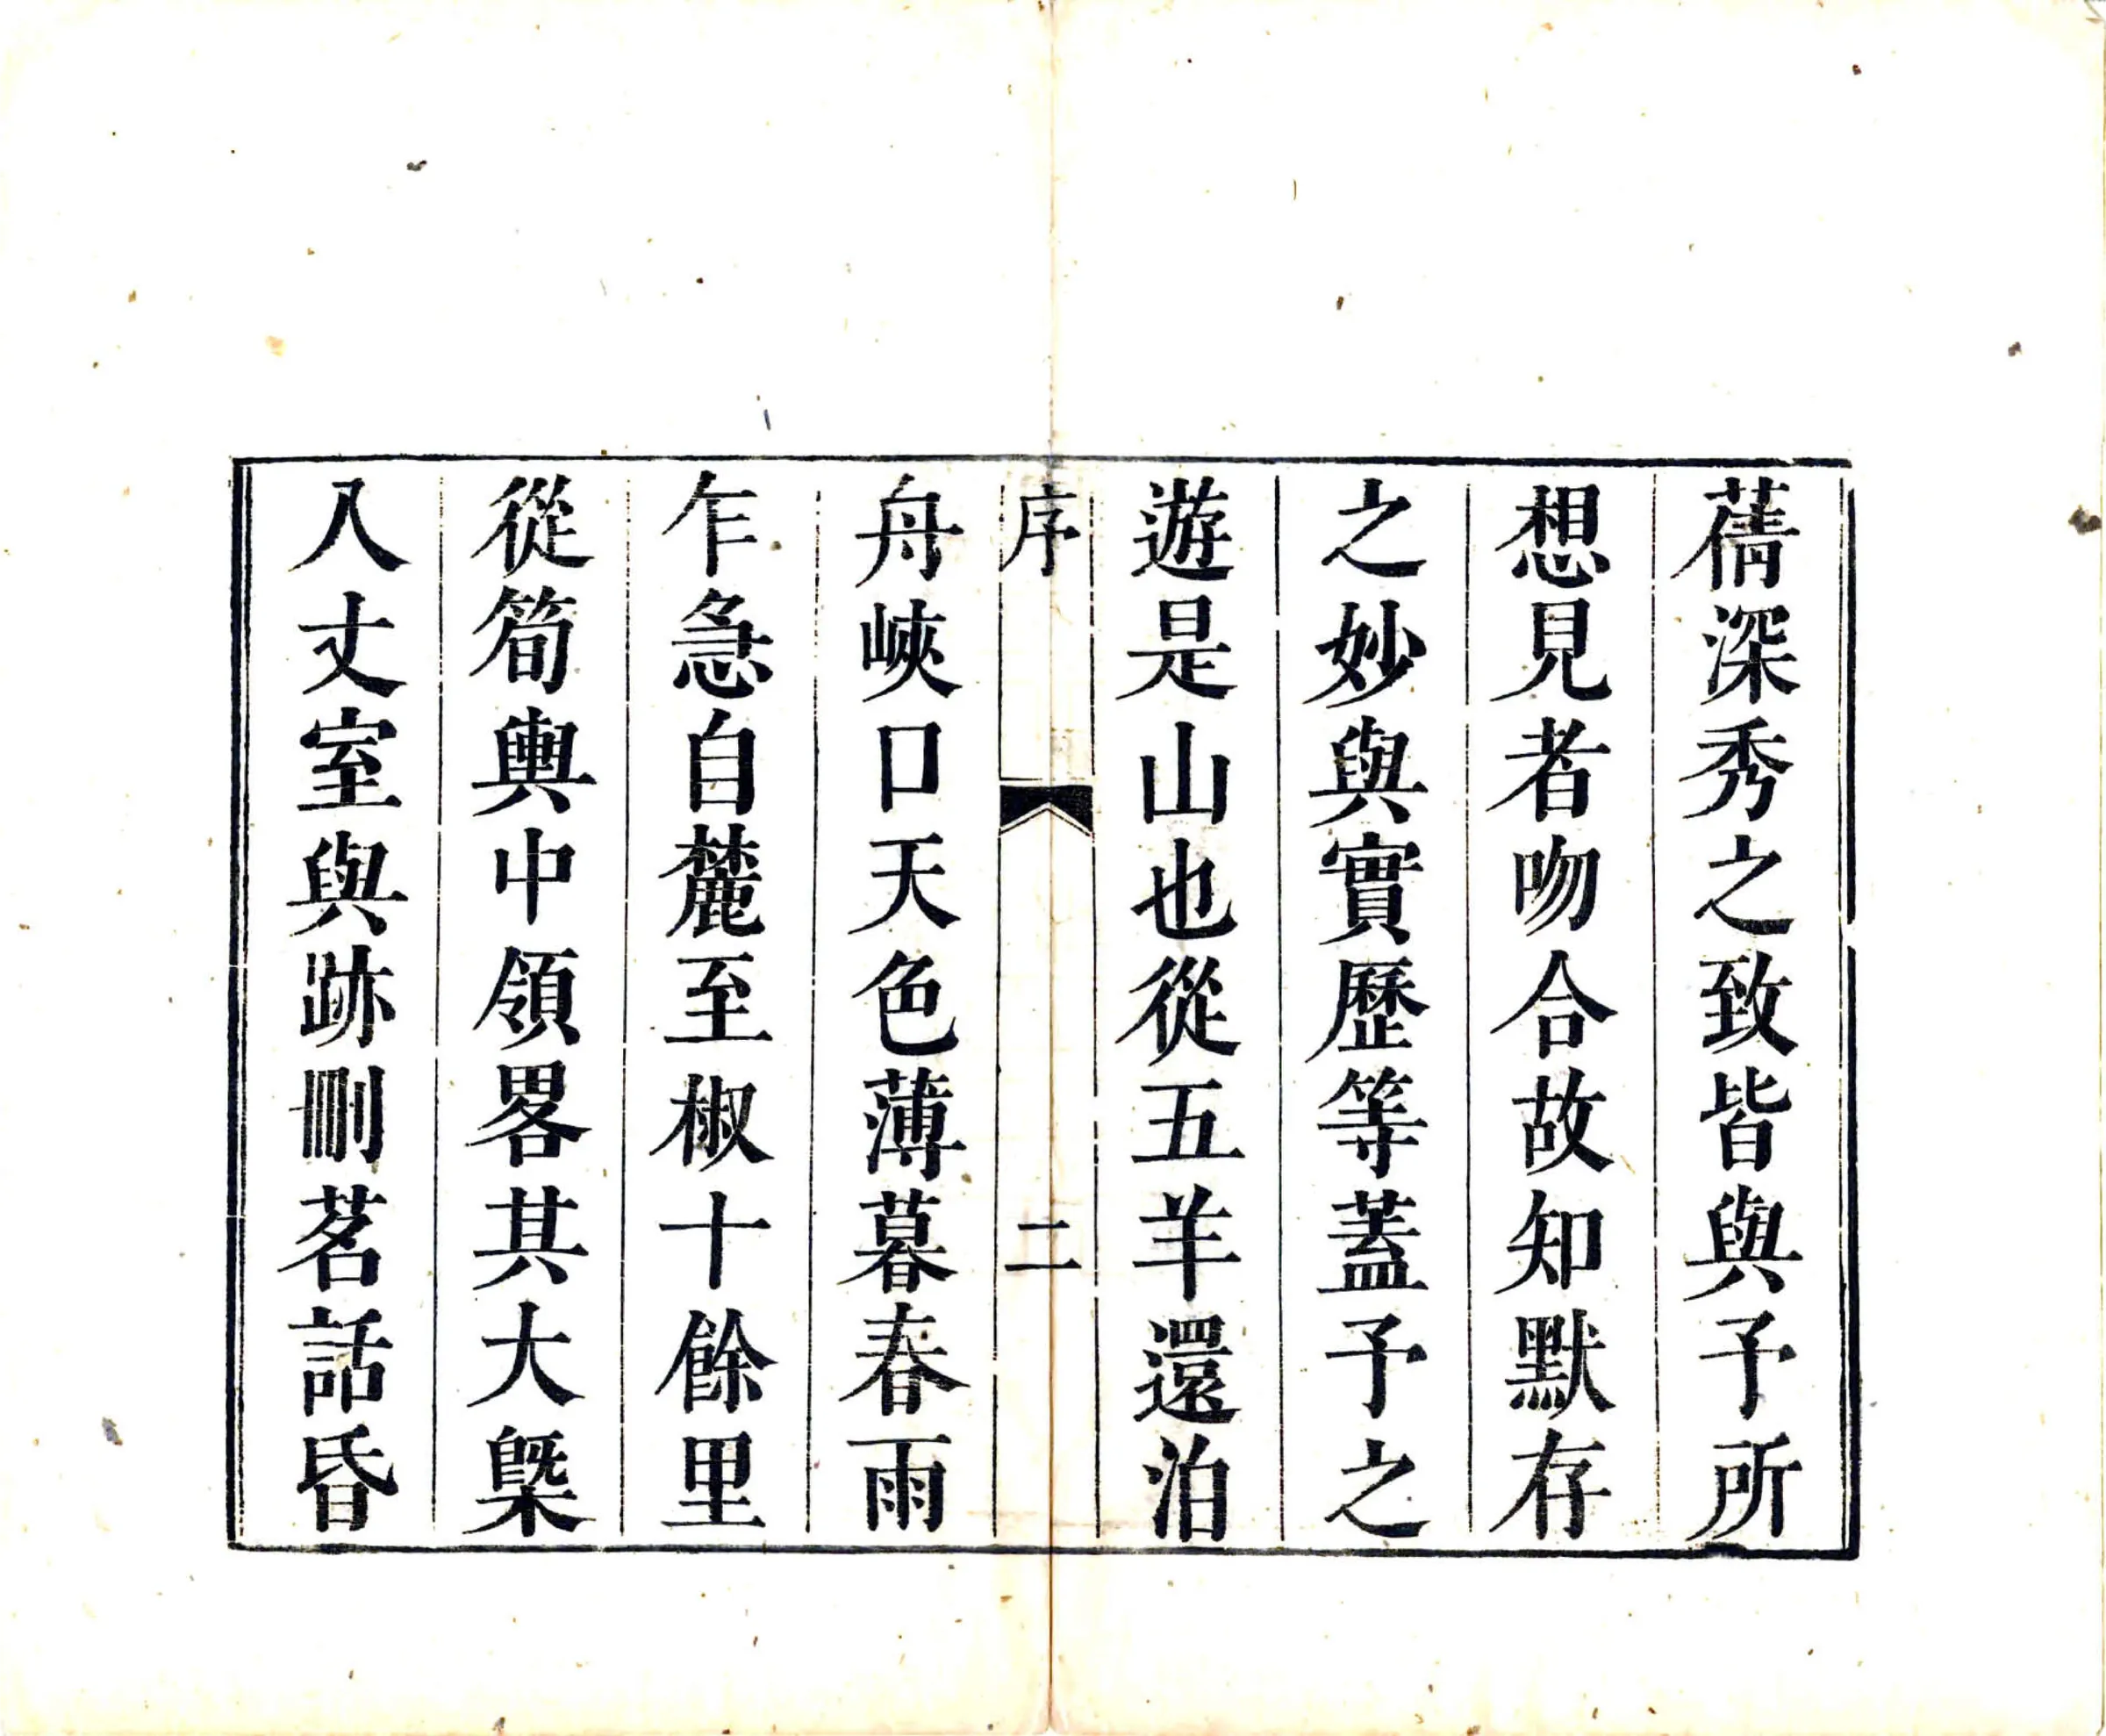 蒨深秀之致皆與予所
想見者吻合故知默存
之妙與實歷等蓋予之
遊是山也從五羊還泊
序
二
舟峽口天色薄暮春雨
乍急自麓至椒十餘里
從筍輿中領畧其大槩
入丈室與跡刪茗話昏